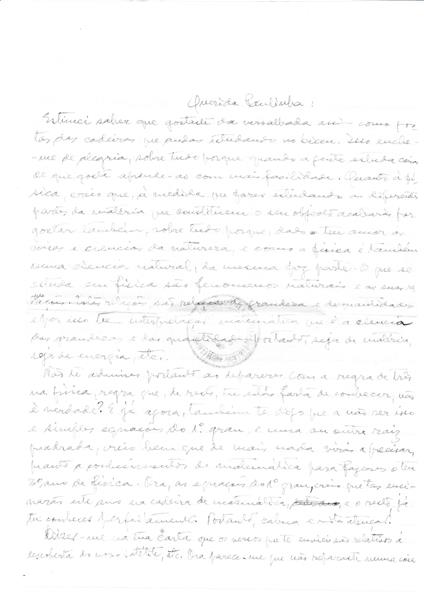 Querida Paulinha:
Estimei saber que gostaste da versalhada assim como gos-
tas das cadeiras que andas estudando no liceu. Isso enche-
-me de alegria, sobre tudo porque quando a gente estuda coisas
de que gosta aprende-as com mais facilidade. Quanto à fí-
sica creio que, à medida que fores estudando as diferentes
partes da matéria que constituem o seu objecto acabarás por
gostar também, sobre tudo porque, dado o teu amor às
coisas e ciencia da natureza, e como a física é também
uma ciencia natural, da mesma faz parte. O que se
estuda em física são fenomenos naturais e as suas
relações
e por isso tem interpretação matemática que é a ciencia
das grandezas e das quantidades, portanto, seja de matéria,
seja de energia, etc.
Não te admires portanto de aparecer com a regra de três
na física, regra que, de resto, tu estás farta de conhecer, não
é verdade? E já agora, também te digo que a não ser isso
e simples equações do 1º grau, e uma ou outra raiz
quadrada, creio bem que de mais nada virás a precisar,
quanto a conhecimentos de matemática para fazeres o teu
ano de física. Ora, as equações do 1º grau, creio que tas ensi-
narão este ano na cadeira de matemática, e o resto, já
tu conheces perfeitamente. Portanto, calma e muita atenção!
Dizes-me na tua carta que os versos que te enviei são relativos à
descoberta do novo satélite, etc. Ora parece-me que não reparaste numa coisa